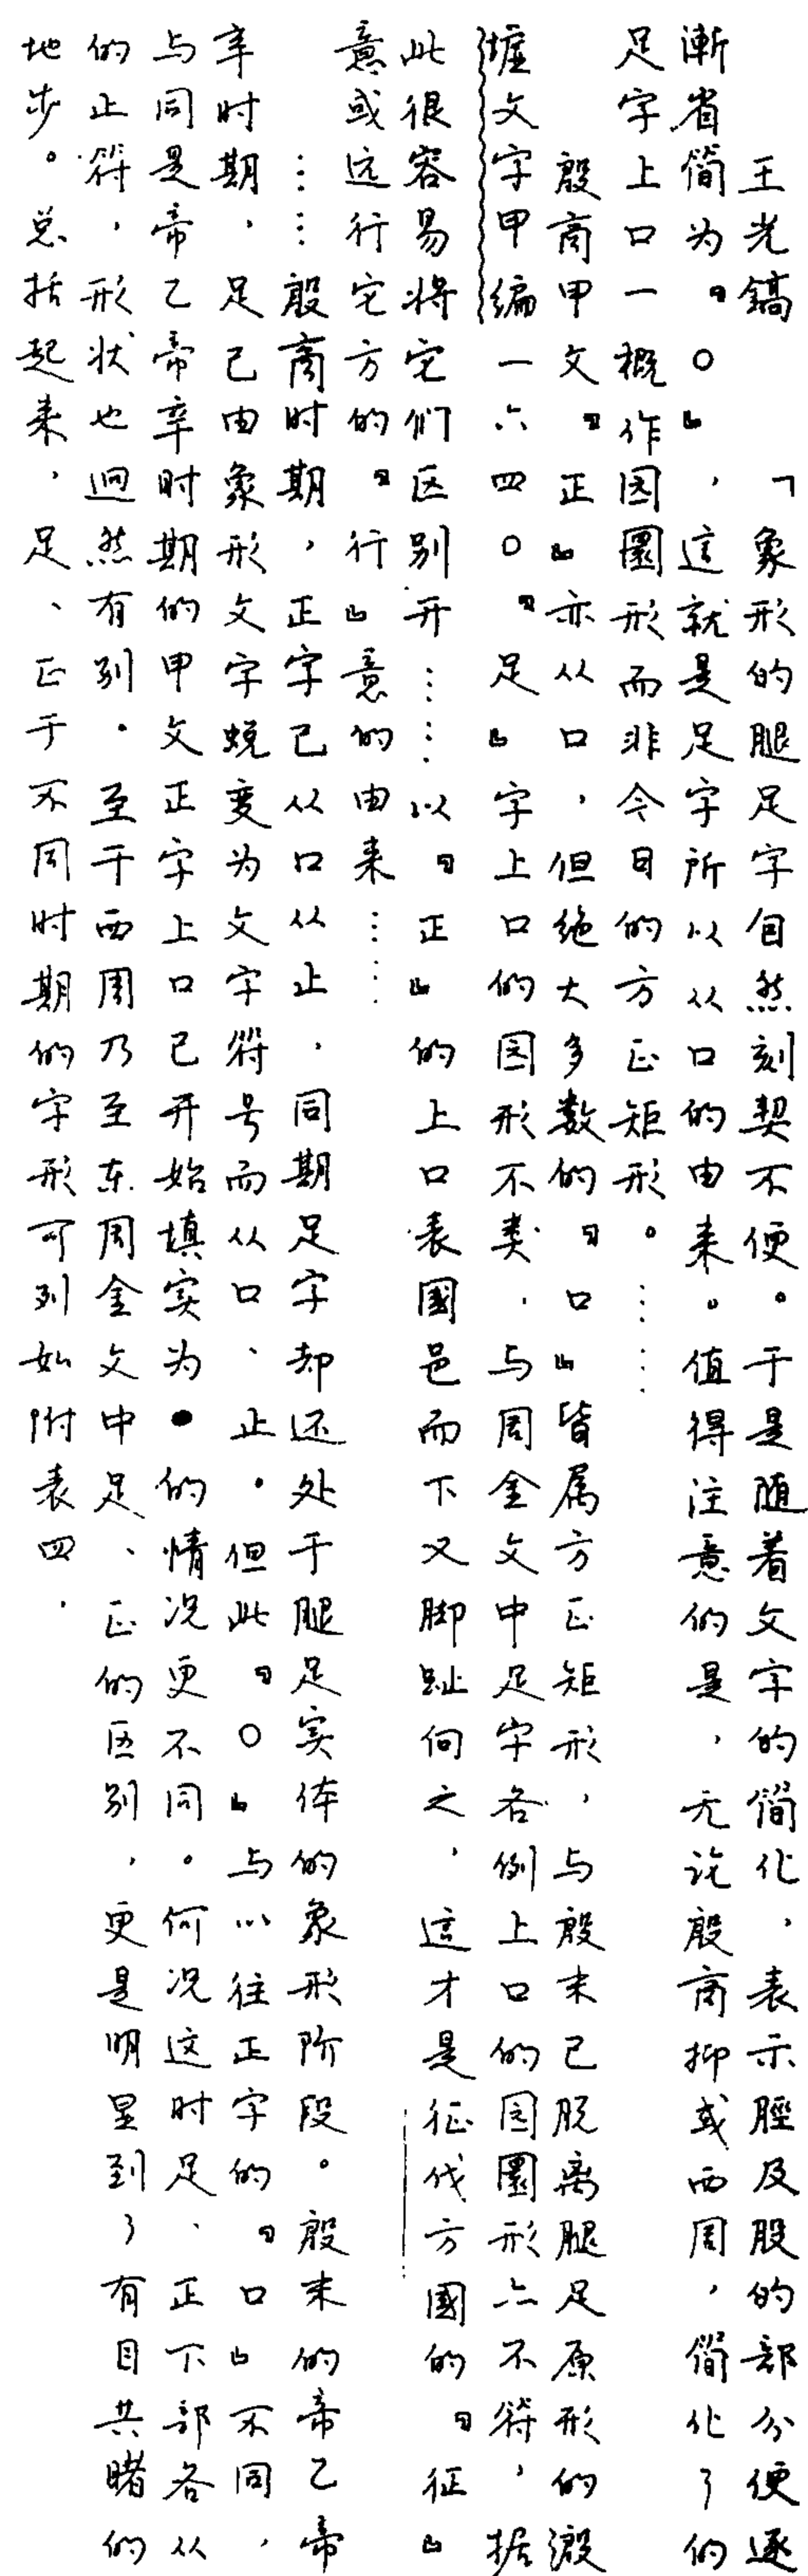 王光鎬　「象形的腿足字自然刻契不便。于是随着文字的簡化，表示脛及股的部分便逐
漸省簡为『○』，這就是足字所以从口的由来。值得注意的是，无论殷商抑或西周，簡化了的
足字上口一概作园圜形而非今日的方正矩形。……
殷商甲文『正』亦从口，但绝大多数的『口』皆属方正矩形，与殷末已脱离腿足原形的澱
墟文字甲编一六四〇『足』字上口的园形不类，与周金文中足字各例上口的园圜形亦不符，据
此很容易将它们区别开……以『正』的上口表國邑而下又脚趾向之，這才是征伐方國的『征』
意或远行它方的『行』意的由来……
……殷商时期，正字已从口从止，同期足字却还处于腿足实体的象形阶段。殷末的帝乙帝
辛时期，足已由象形文字蜕变为文字符号而从口、止。但此『○』与以往正字的『口』不同，
与同是帝乙帝辛时期的甲文正字上口已开始填实为●的情况更不同。何况这时足、正下部各从
的止符，形状也迥然有别。至于西周乃至东周金文中足、正的区别，更是明显到了有目共睹的
地步。总括起来，足、正于不同时期的字形可列如附表四，